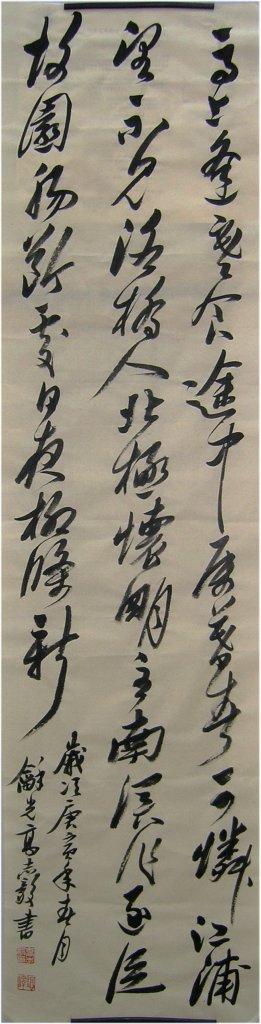 馬上逢寒食途中属暮春可憐江浦
望不見洛橋人北極懷明主南溟作逐臣
故園腸斷處日夜柳條新
歲次庚寅年春月
高志書